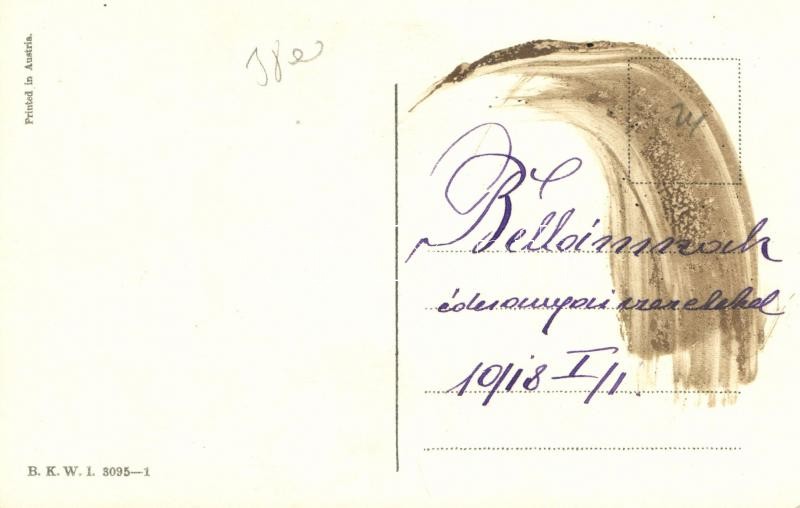 Printed in Austria.
Béllámnak
édesanyai szeretettel
1918 I/1.
B. K. W. I. 3095—1